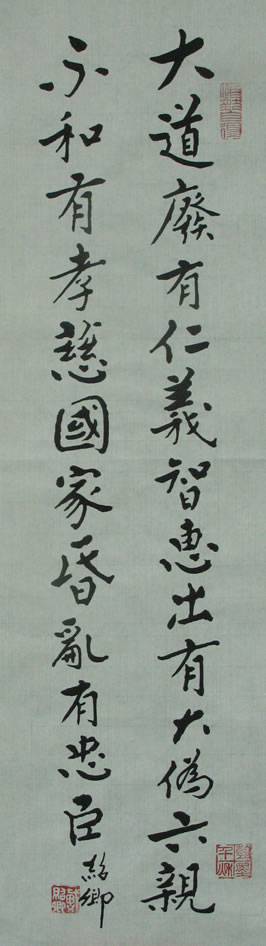 大道廢有仁義智惠出有大偽六親
不和有孝慈國家昏亂有忠臣
紹卿